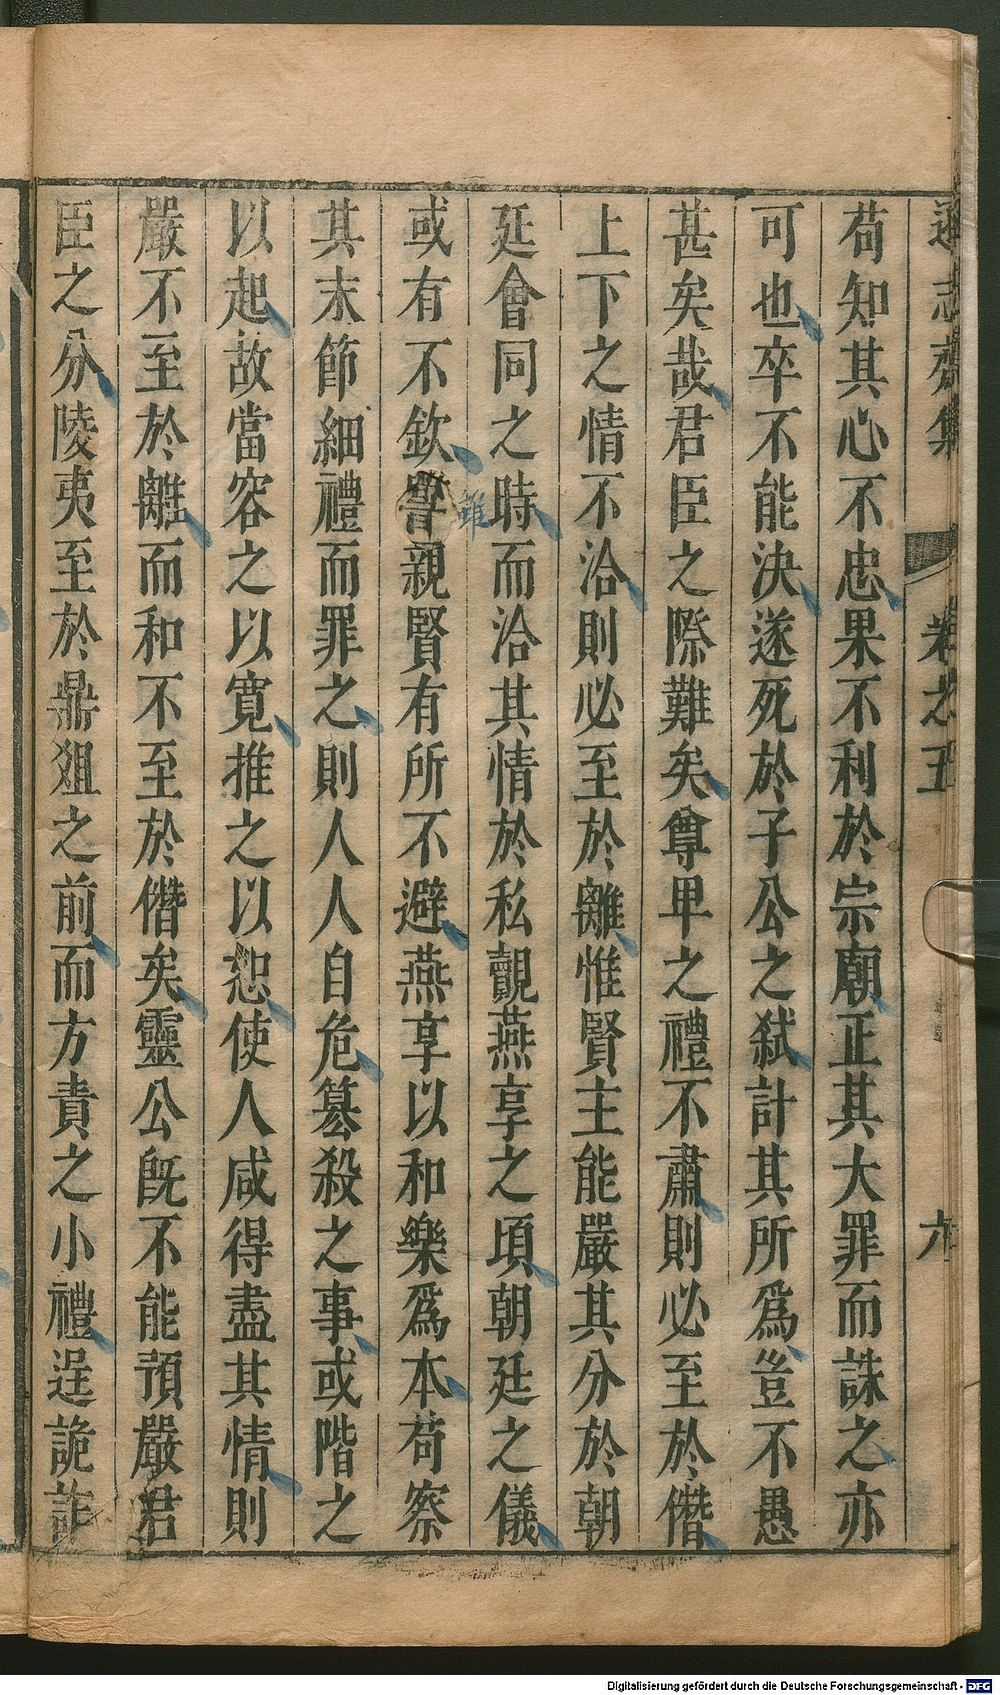 遜志齋集 卷之五 六
苟知其心不忠果不利於宗廟正其大罪而誅之亦
可也卒不能決遂死於子公之弑計其所爲豈不愚
甚矣哉君臣之際難矣尊卑之禮不肅則必至於僭
上下之情不洽則必至於離惟賢主能嚴其分於朝
廷會同之時而洽其情於私覿燕享之頃朝廷之儀
或有不欽親賢有所不避燕享以和樂爲本苟察
雖
其末節細禮而罪之則人人自危簒殺之事或階之
以起故當容之以寬推之以恕使人咸得盡其情則
嚴不至於離而和不至於僭矣靈公旣不能預嚴君
臣之分陵夷至於鼎俎之前而方責之小禮逞詭詐
Digitalisierung gefördert durch die Deutsche Forschungsgemeinschaft - DFG